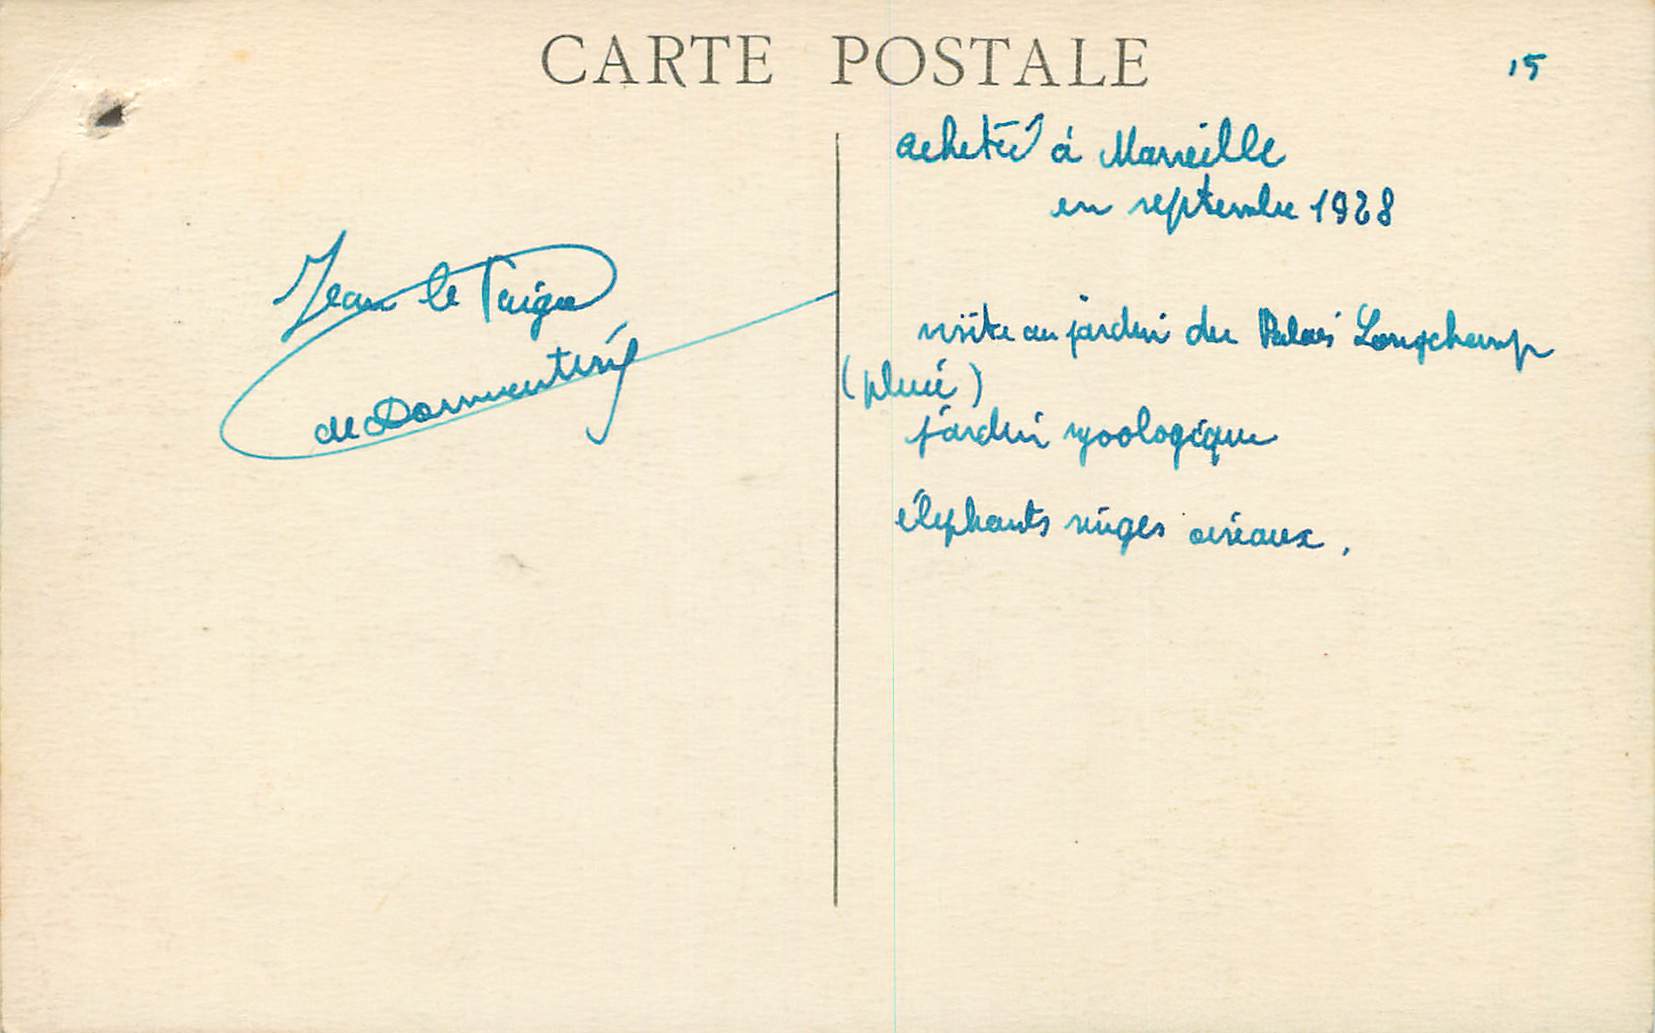 CARTE POSTALE
15
acheté à Marseille
en septembre 1928
Jean le
de
visite au jardin du Palais Longchamp
(pluie)
jardin zoologique
éléphants singes oiseaux.